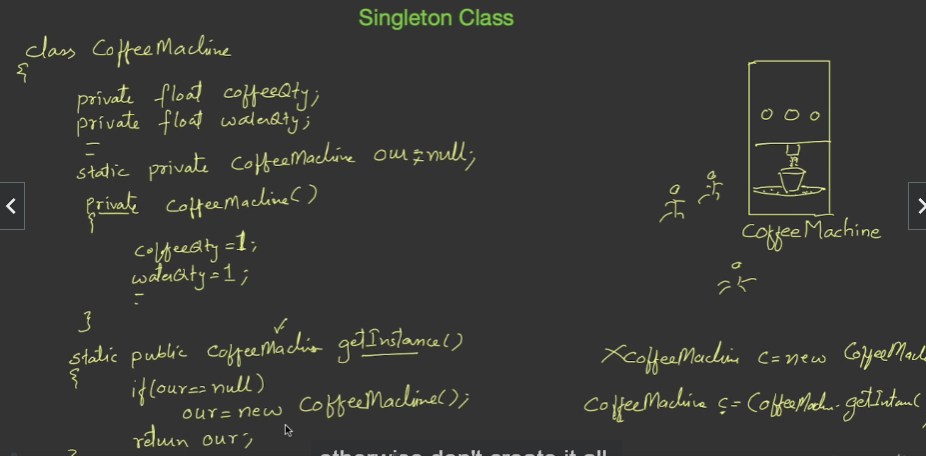 Singleton Class
class CoffeeMachine
{
private float coffeeQty;
private float waterQty;
static private CoffeeMachine our=null;
private CoffeeMachine()
{
coffeeQty=1;
waterQty=1;
}
static public CoffeeMachin getInstance()
{
if(our==null)
our=new CoffeeMachine();
return our;
CoffeeMachine
X CoffeeMachine c=new CoffeeMach
CoffeeMachine c=CoffeeMach.getInstanc(